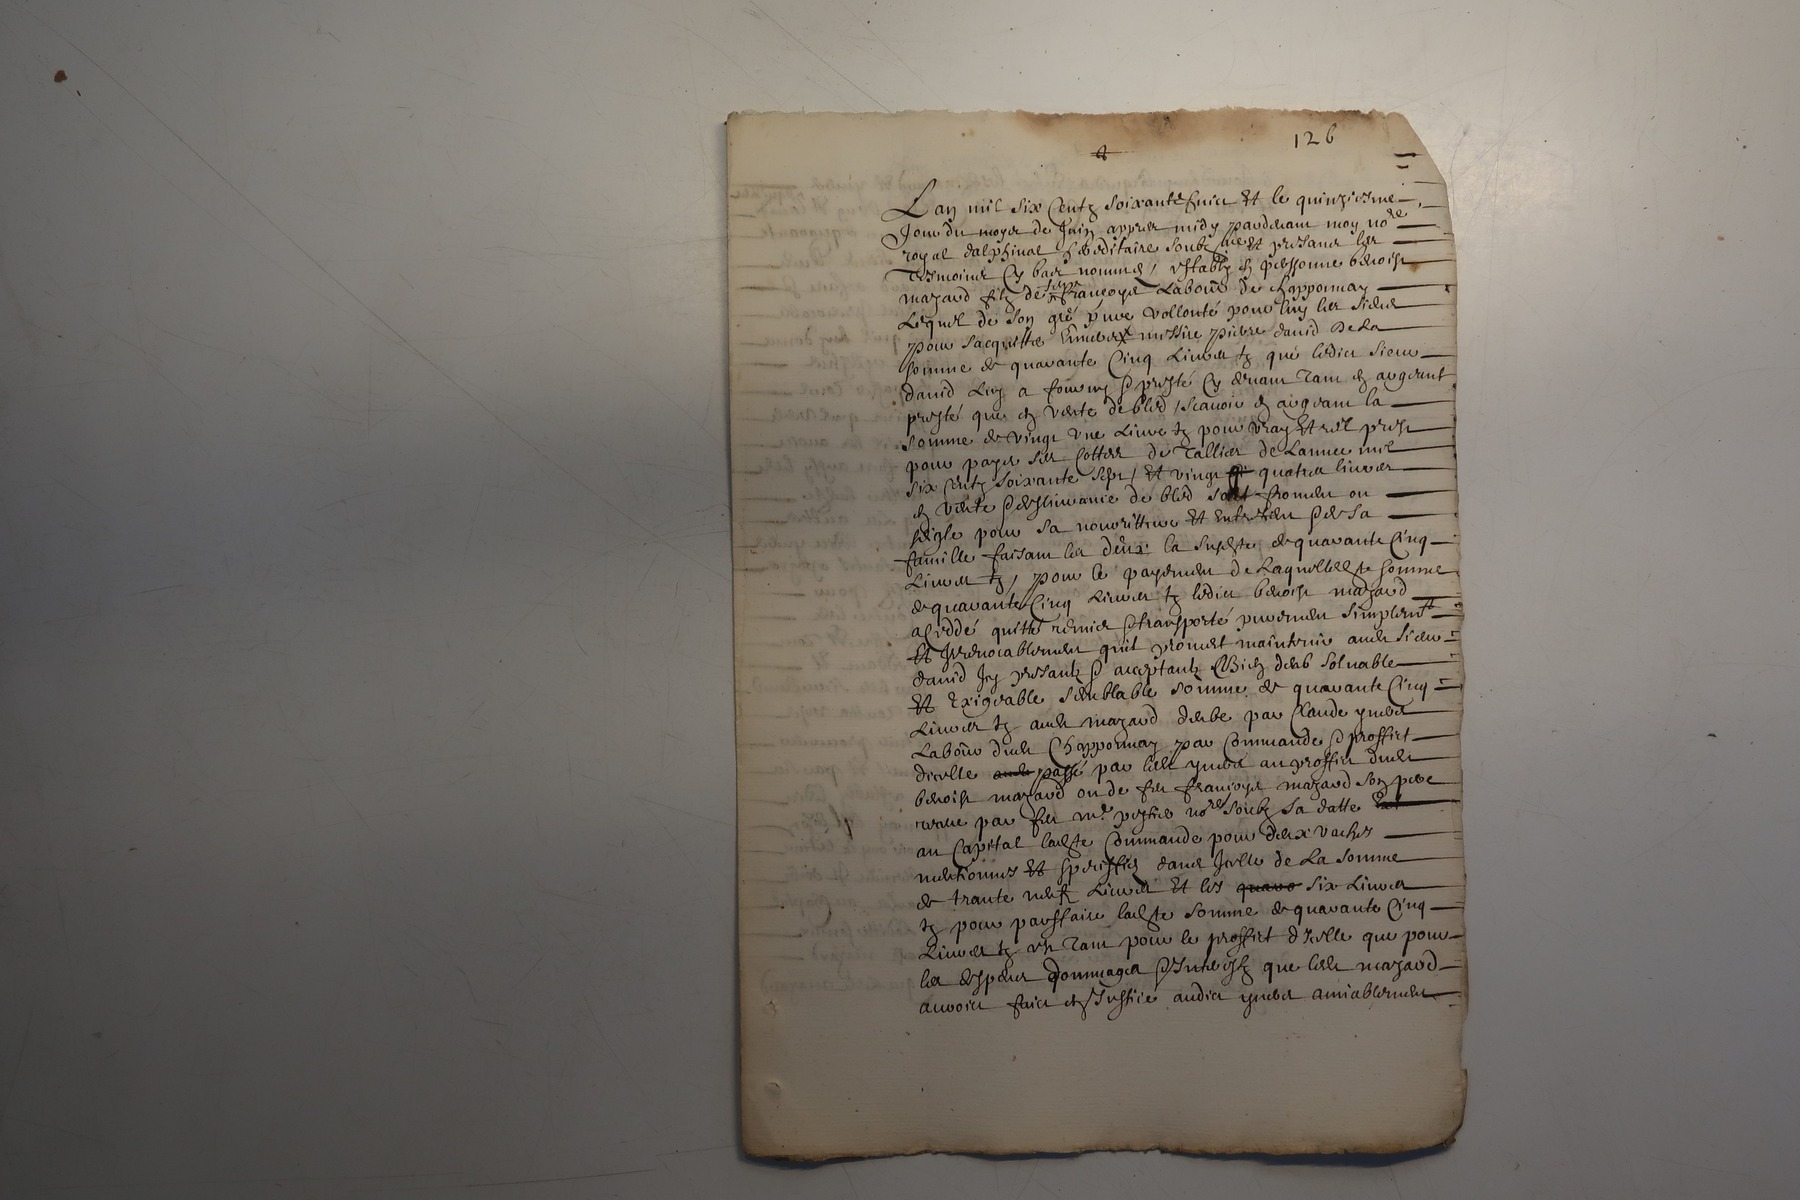 126
Lan mil six centz soixante huict et le quinziesme
Jour du moys de Juin appres midy pardevant moy no.re
royal dalphinal hereditaire soubz ne et presans les
tesmoins cy bas nommes / estably en personne benoist
mazard filz de feu françoys Labour de Chapponnay
Lequel de son gré pure vollonté pour luy les siens
pour sacquitter envers messire pierre david De La
somme de quarante Cinq Livres tz que ledict sieur
david Luy a fourny & presté cy devant tant en argeant
presté que en vante de bled / scavoir en argeant la
somme de vingt une Livre tz pour vray et reel prest
pour payer ses Cottes de Tallies de Lannee mil
six centz soixante sept / et vingt quatre livres
en vante & deslivrance de bled soit froment ou
seigle pour sa nourritture et entretien & de sa
famille faisant les deux la suste de quarante Cinq
Livres tz / pour le payement de Laquelle ste somme
de quarante Cinq Livres tz ledict benoist mazard
a ceddé quitté remis & transporté purement simplemt
et Irrevocablement quil promet maintenir audt sieur
david Icy presant & acceptant Bien deub solvable
et Exigeable semblable somme de quarante Cinq
Livres tz audt mazard deube par Claude ymbert
Labour dudt Chapponnay par Commande & proffict
dicelle passé par ledt ymbert au proffict dudt
benoist mazard ou de feu françoys mazard son pere
receue par feu me no.re soubz sa datte
au Capital ladste Commande pour deux vaches
mentionnés et speciffiés dans Icelle de La somme
de trante neufz Livres et les six Livres
tz pour parffaire ladste somme de quarante Cinq
Livres tz est tant pour le proffict dIcelle que pour
les despens dommages & Interestz que ledt mazard
auroict faict en Justice audict ymbert amiablement